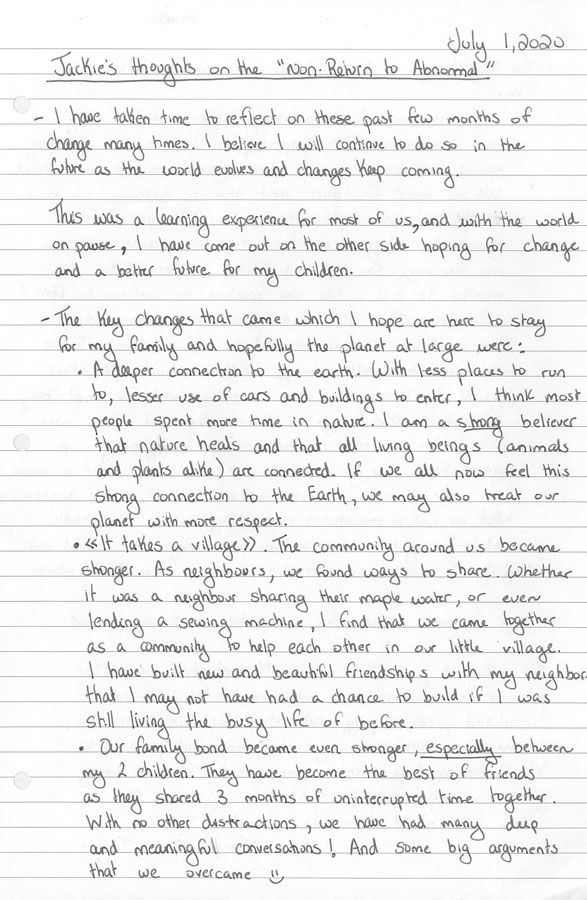 July 1, 2020
Jackie's thoughts on the "Non-Return to Abnormal"
- I have taken time to reflect on these past few months of
change many times. I believe I will continue to do so in the
future as the world evolves and changes keep coming.
This was a learning experience for most of us, and with the world
on pause, I have come out on the other side hoping for change
and a better future for my children.
- The key changes that came which I hope are here to stay
for my family and hopefully the planet at large were:
• A deeper connection to the earth. With less places to run
to, lesser use of cars and buildings to enter, I think most
people spent more time in nature. I am a strong believer
that nature heals and that all living beings (animals
and plants alike) are connected. If we all now feel this
strong connection to the Earth, we may also treat our
planet with more respect.
• «It takes a village». The community around us became
stronger. As neighbours, we found ways to share. Whether
it was a neighbour sharing their maple water, or even
lending a sewing machine, I find that we came together
as a community to help each other in our little village.
I have built new and beautiful friendships with my neighbor
that I may not have had a chance to build if I was
still living the busy life of before.
• Our family bond became even stronger, especially between
my 2 children. They have become the best of friends
as they shared 3 months of uninterrupted time together.
With no other distractions, we have had many deep
and meaningful conversations! And some big arguments
that we overcame ☺